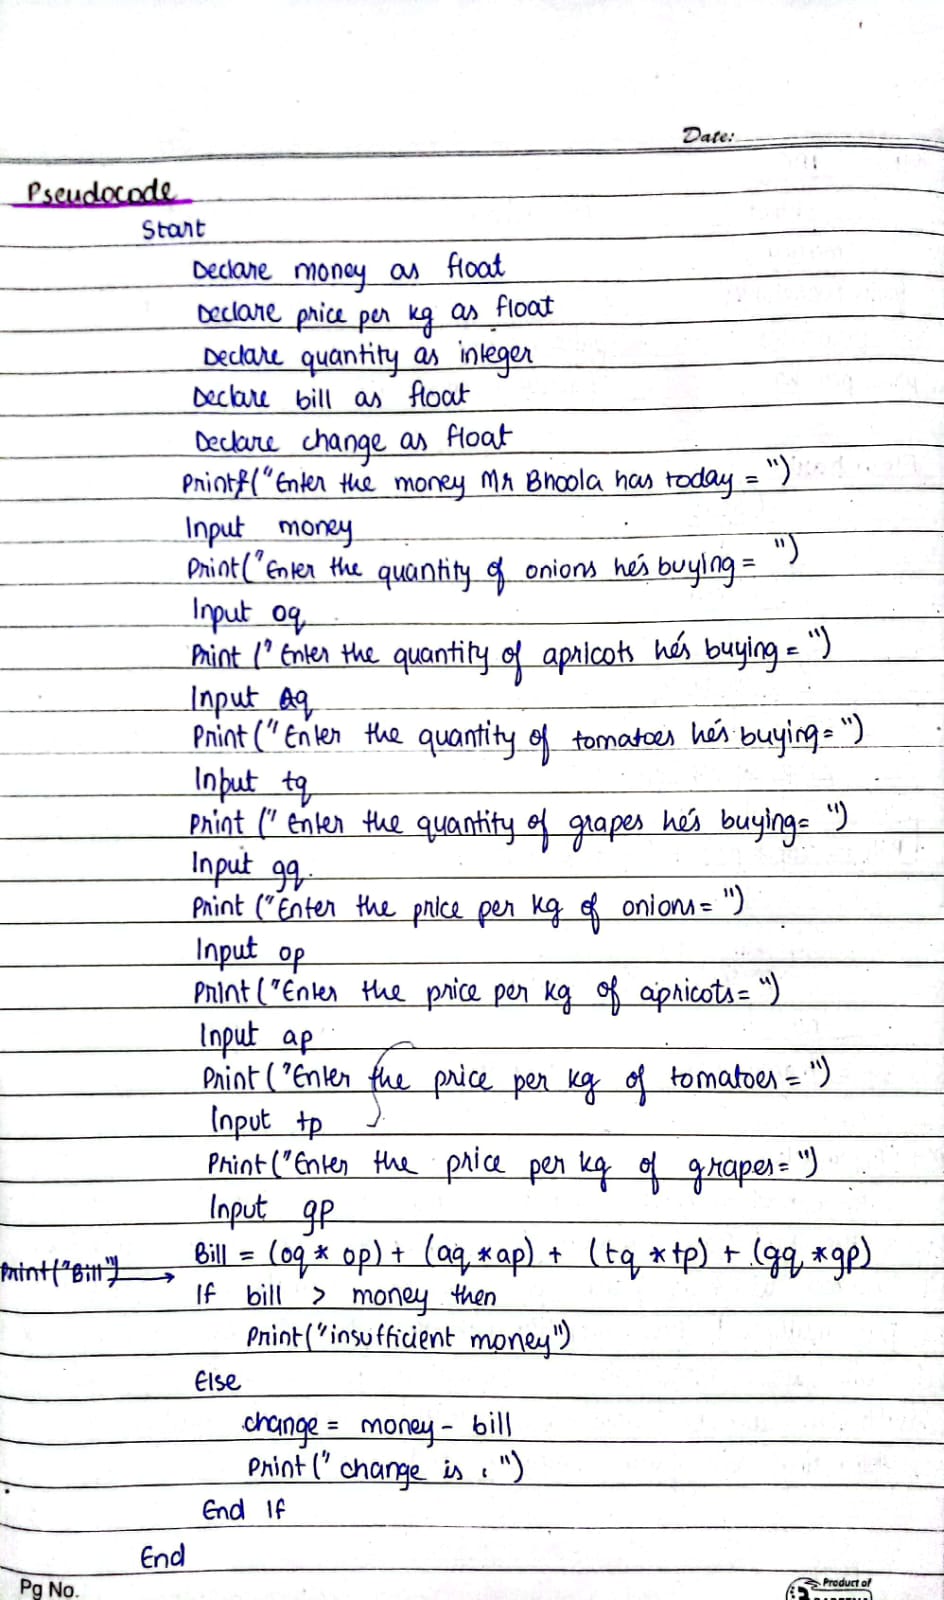 Date:
Pseudocode
Start
Declare money as float
Declare price per kg as float
Declare quantity as integer
Declare bill as float
Declare change as float
Printf("Enter the money Mr Bhoola has today = ")
Input money
Print("Enter the quantity of onions he's buying = ")
Input oq
Print ("Enter the quantity of apricots he's buying = ")
Input Aq
Print ("Enter the quantity of tomatoes he's buying= ")
Input tq
Print (" Enter the quantity of grapes he's buying= ")
Input gq.
Print ("Enter the price per kg of onions= ")
Input op
Print ("Enter the price per kg of apricots= ")
Input ap
Print ("Enter the price per kg of tomatoes = ")
Input tp
Print ("Enter the price per kg of grapes= ")
Input gp
Bill = (oq * op) + (aq * ap) + (tq * tp) + (gq * gp)
Print("Bill")
If bill > money then
Print("insufficient money")
Else
change = money - bill
Print (" change is : ")
End If
End
Pg No.
Product of